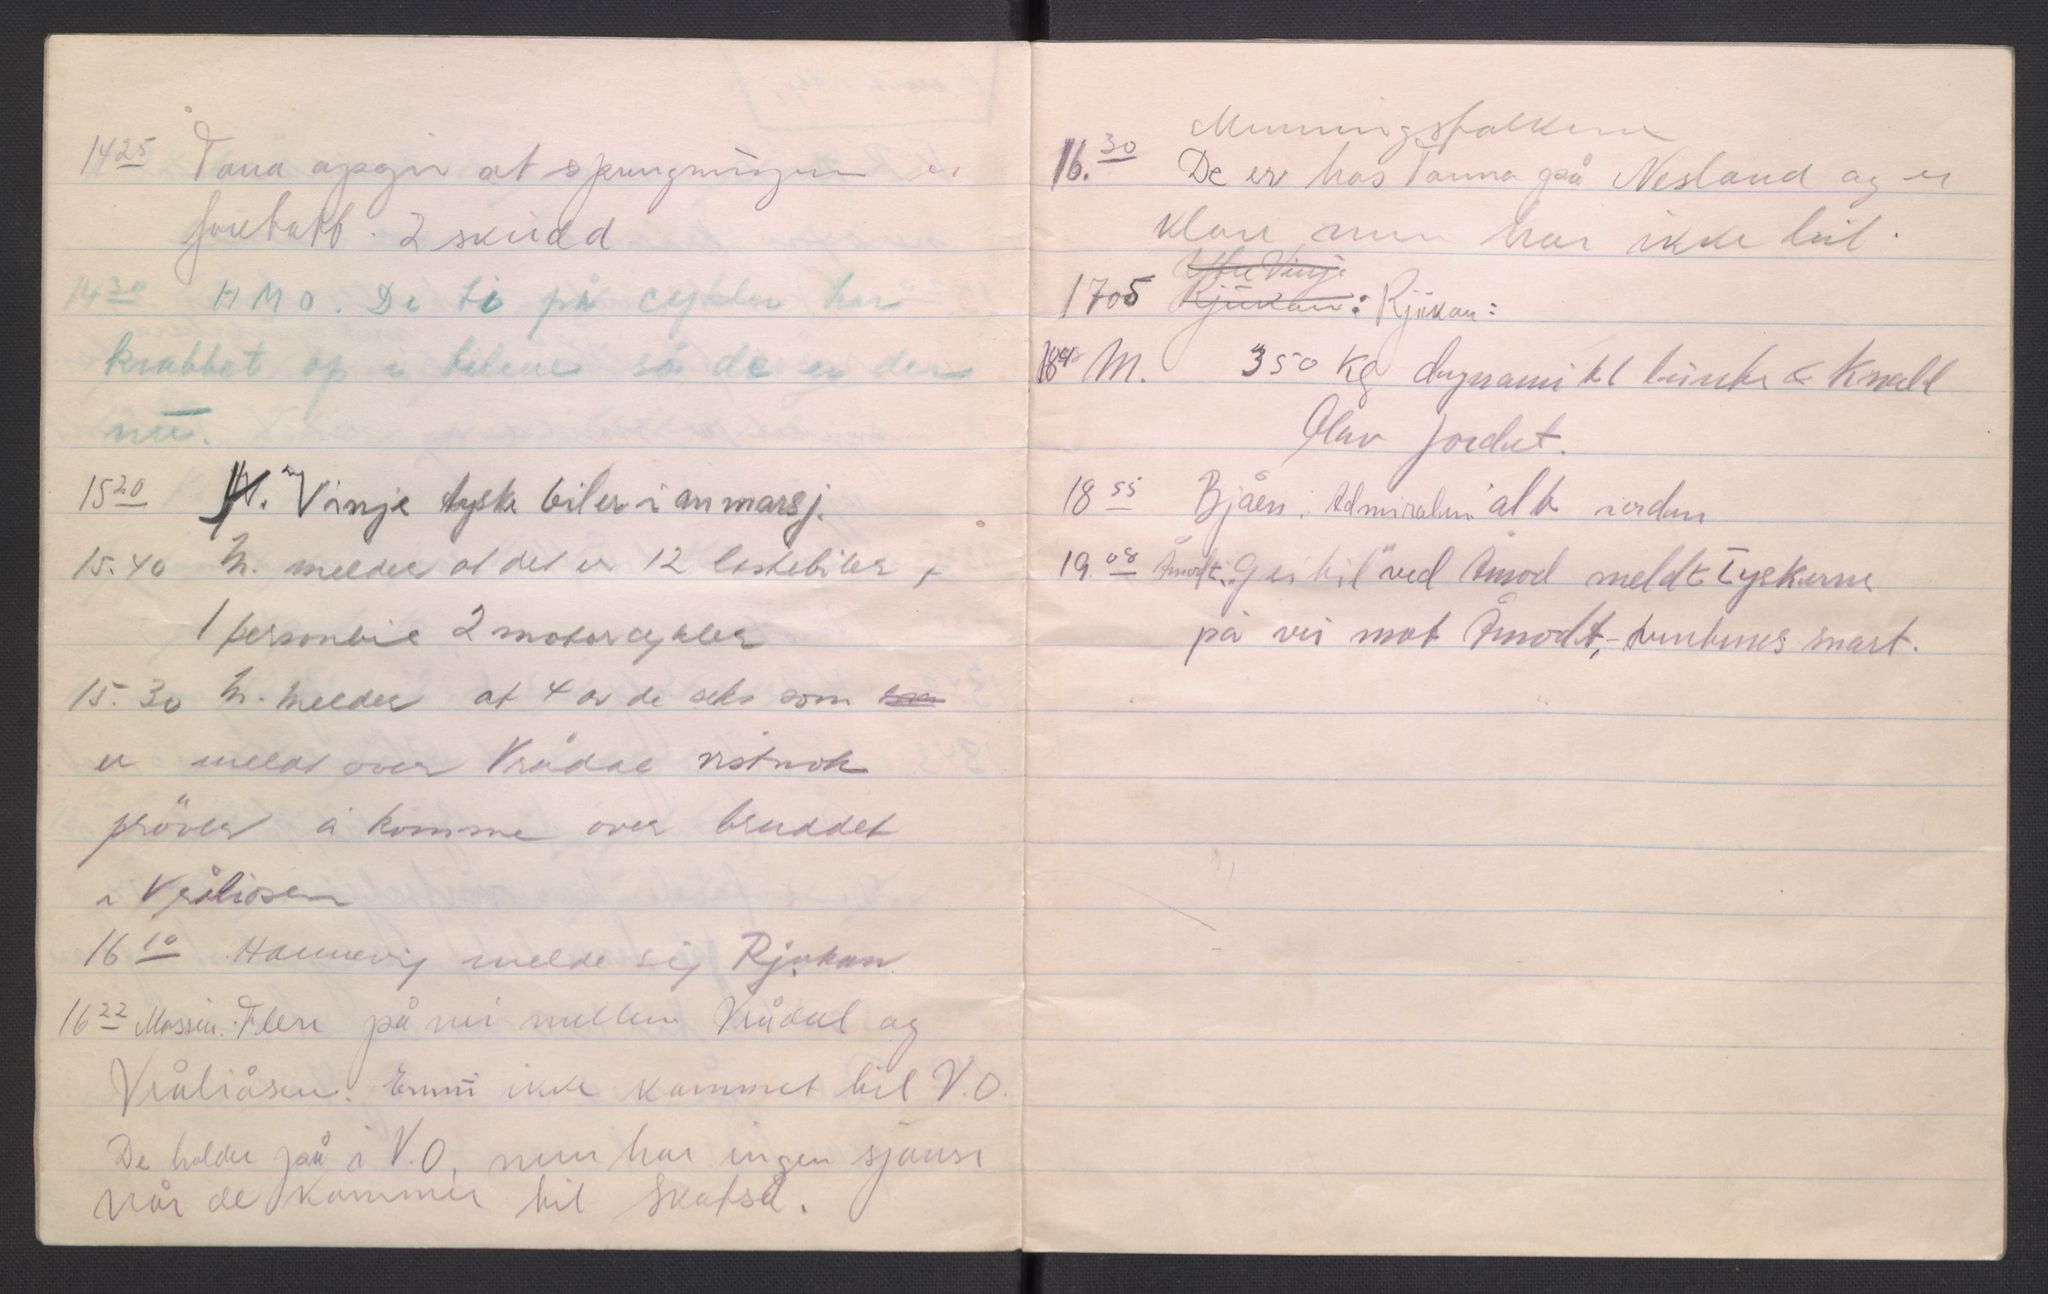 14 25 Tana opgir at sprengningen er
foretatt. 2 skudd
14 30 HMO. De ti på cykler har
krabbet op i bilene så de er der
nu.
15 20 Vinje tyske biler i anmarsj.
15.40 M. melder at det er 12 lastebiler,
1 personbil 2 motorcykler
15.30 M. melder at 4 av de seks som
er meldt over Vrådal vistnok
pröver å komme over bruddet
i Vråliosen
16 10 Hannevig melde sig Rjukan
16 22 Flere på vei mellem Vrådal og
Vråliåsen. Ennu ikke kommet til V.O.
De holder på i V.O, men har ingen sjanse
når de kommer til Skafså.
Meningsfolkene
16.30 De er hos Tanna på Nesland og er
klare men har ikke bil.
Ytre Vinje
1705 Rjukan: Rjukan:
18 M. 350 kg dynamitt lunte & knall
Olav Jordet.
18 55 Bjåen. Admiralen alt iorden
19.08 Åmodt: ved Åmod meldt Tyskerne
på vei mot Åmodt, ventenes snart.